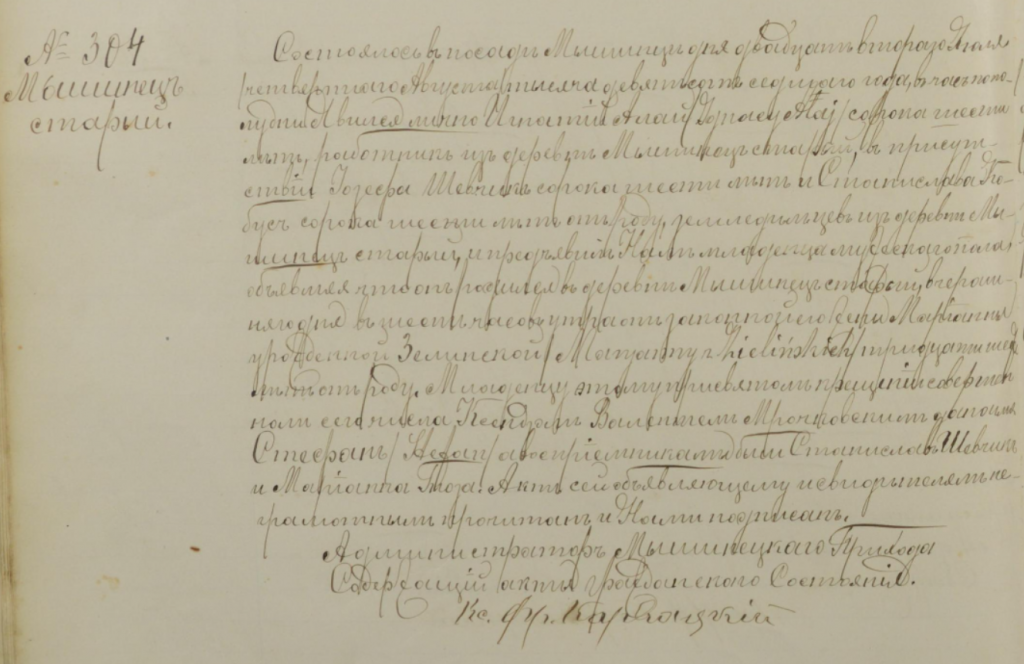 № 304
Мышинецъ
старый.
Состоялось въ посадѣ Мышинецъ дня двадцать втораго Іюля
/четвертаго Августа/ тысяча девятьсотъ седьмаго года, въ часъ попо-
лудни. Явился лично Игнатій Алай /Ignacy Ałaj/ сорока шести
лѣтъ, работникъ изъ деревни Мышинецъ старый, въ присут-
ствіи Іозефа Шевчикъ сорока шести лѣтъ и Станислава
бусъ сорока шести лѣтъ отъ роду, земледѣльцевъ изъ деревни Мы-
шинецъ старый, и предъявилъ Намъ младенца мужескаго пола,
объявляя что онъ родился въ деревнѣ Мышинецъ старый, вчераш-
няго дня въ шесть часовъ утра отъ законной его жены Маріанны
урожденной Зелинской /Maryanny z Zielińskich/ тридцати
лѣтъ отъ роду. Младенцу этому при святомъ крещеніи совершен-
номъ сего числа Ксендзомъ Валентіемъ дано имя
Стефанъ /Stefan/ а воспріемниками были Станиславъ Шевчикъ
и Маріанна Актъ сей объявляющему и свидѣтелямъ не-
грамотнымъ прочитанъ и Нами подписанъ.
Администраторъ Мышинецкаго Прихода
Содержащій акты гражданскаго Состоянія.
Кс. Фр. Карвацкій